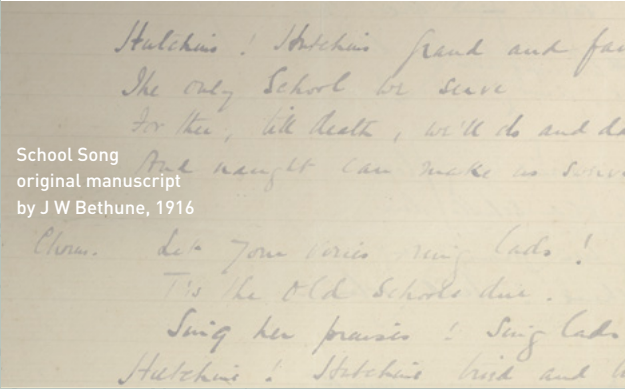 Hutchins! Hutchins grand and
The only School we serve
For thee, till death, we'll do and
And naught can make us
School Song
original manuscript
by J W Bethune, 1916
Chorus. Let your voices ring lads!
T'is the Old Schools due.
Sing her praises! Sing lads
Hutchins! Hutchins tried and